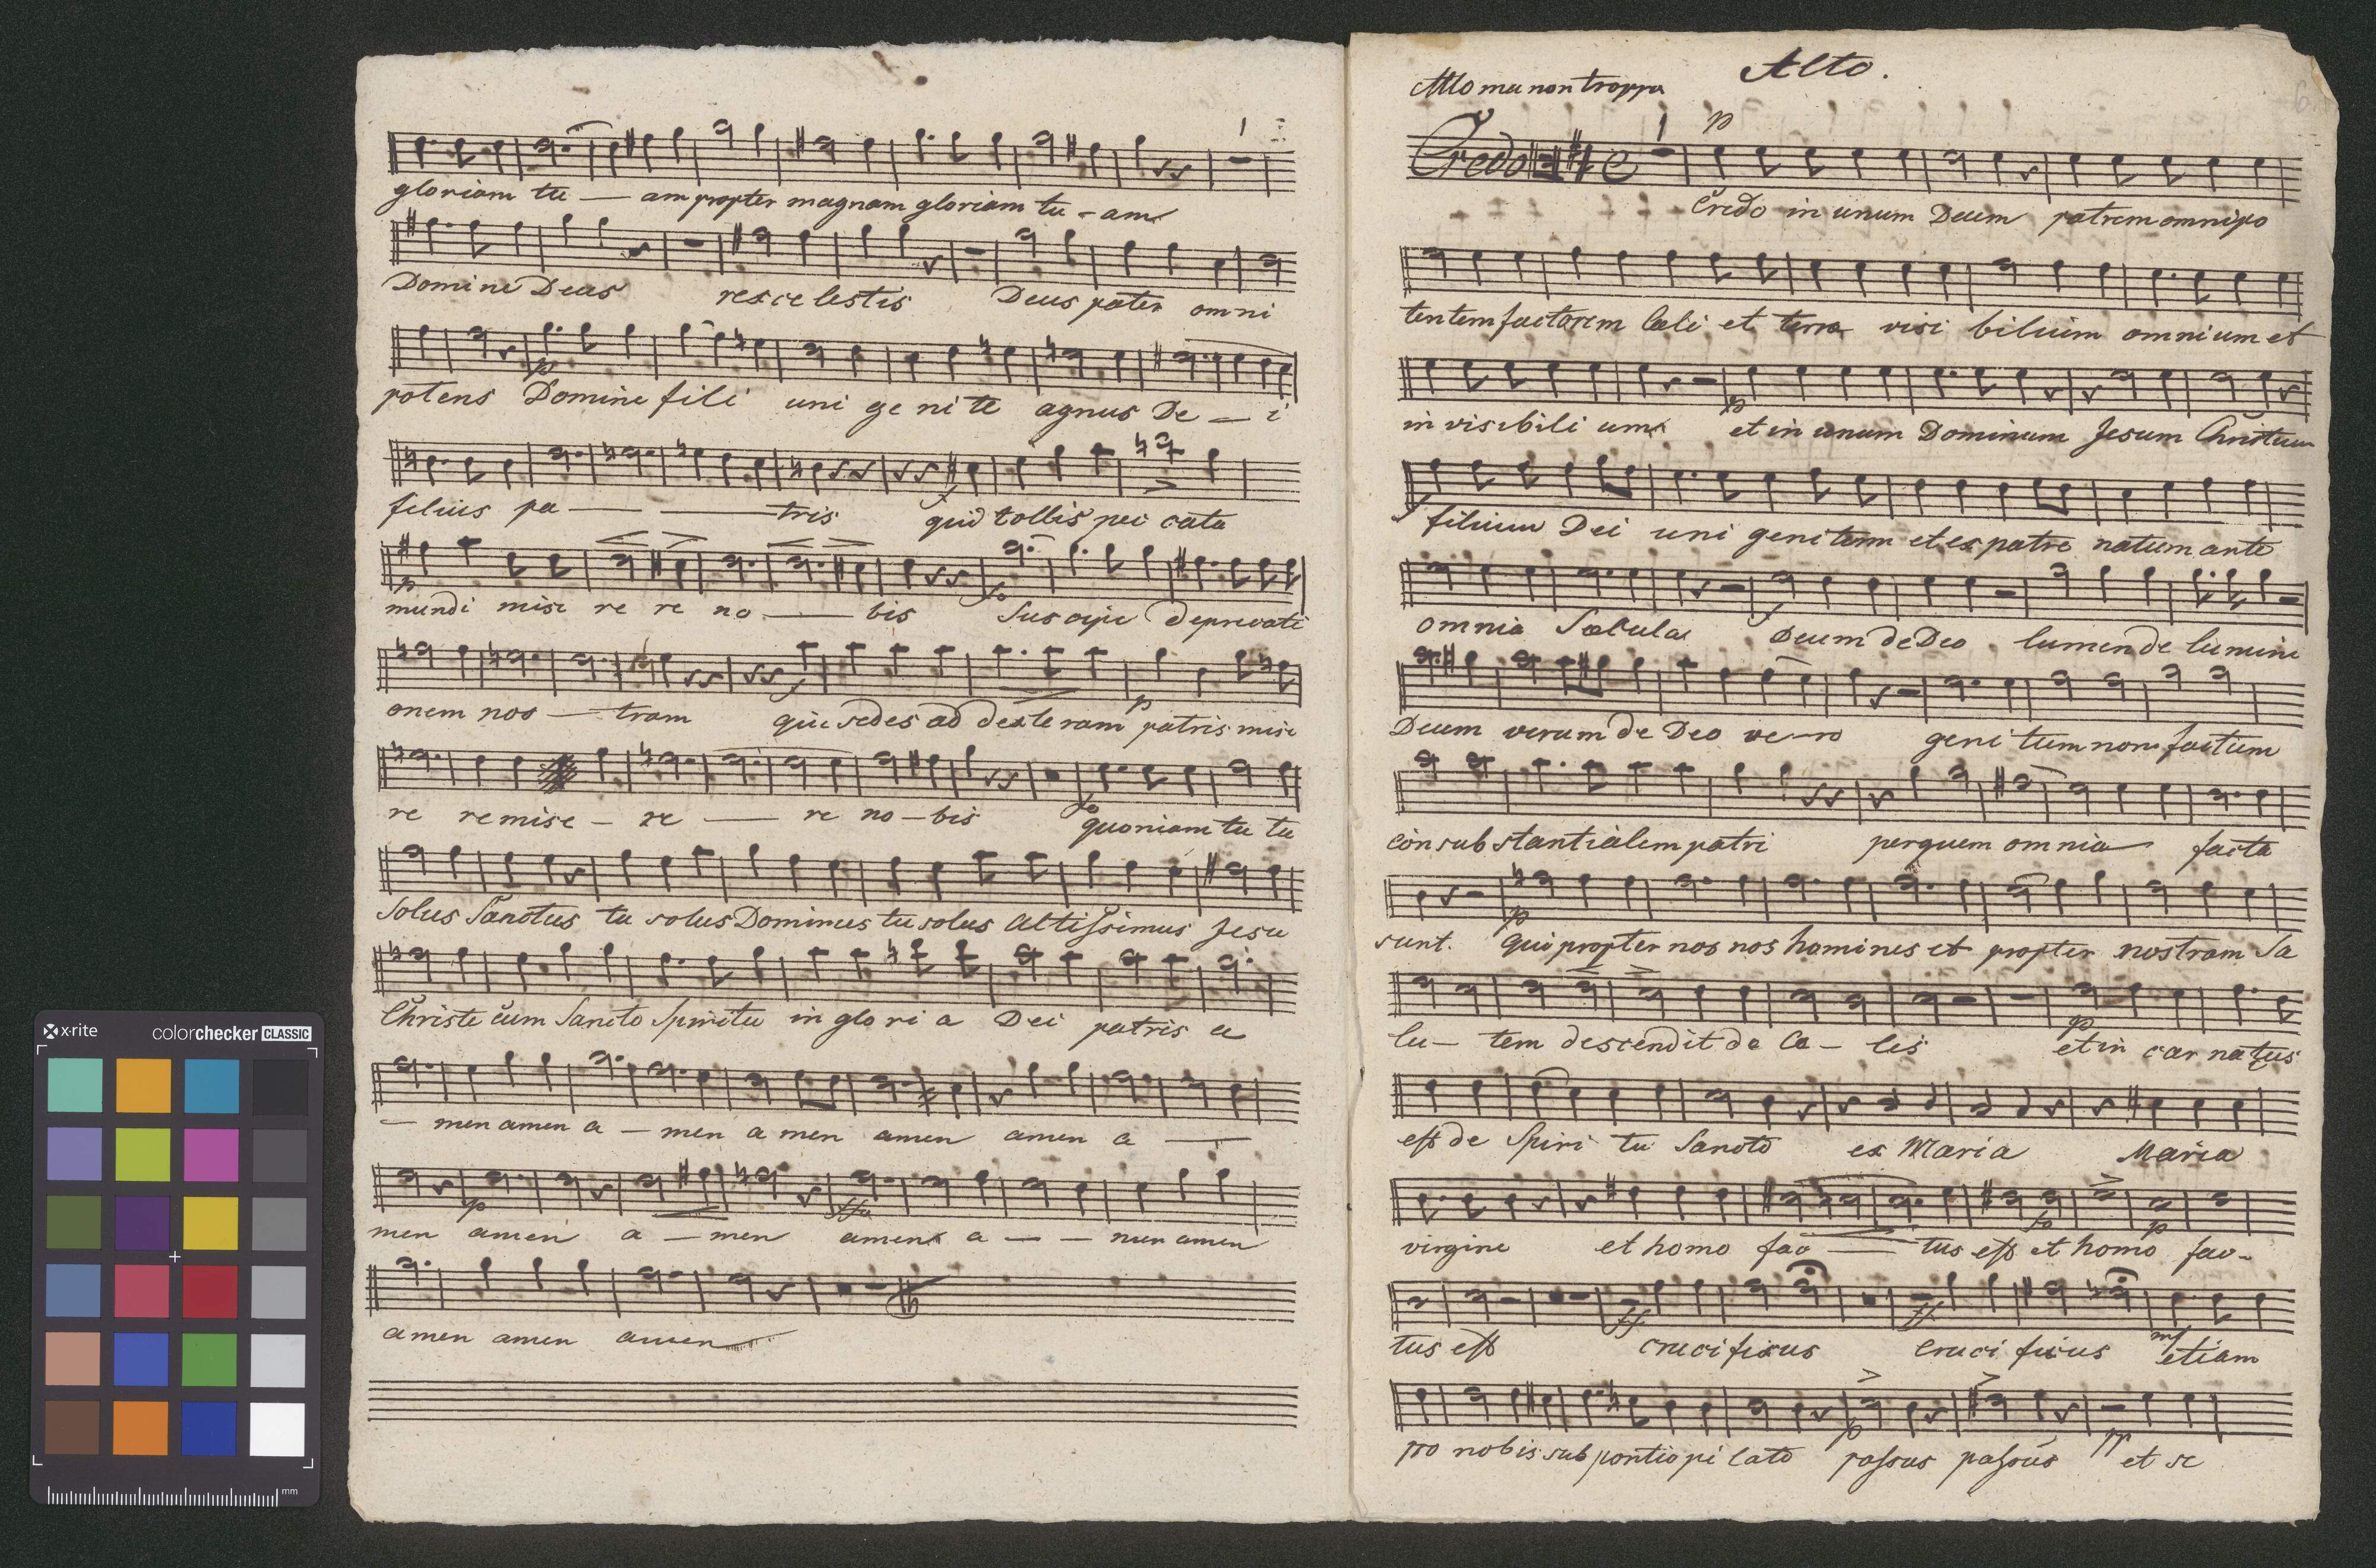 gloriam tu — am propter magnam gloriam tu - am
Domine Deus rex ce lestis Deus pater omni
potens Domine fili uni ge ni te agnus De — i
p
filius pa — — tris qui tollis pec cata
mundi mise re re no — bis Suscipe deprecati
onem nos — tram qui sedes ad dexte ram patris mise
re re mise - re — re no - bis quoniam tu tu
solus Sanctus tu solus Dominus tu solus Altissimus Jesu
Christe cum Sancto Spiritu in glo ri a Dei patris a
— men amen a — men a men amen amen a —
men amen a — men amen a — — men amen
amen amen amen
Alto.
Allo ma non troppo
Credo
p
Credo in unum Deum patrem omnipo
tentem factorem Celi et terra visi bilium omnium et
in visibili um et in unum Dominum Jesum Christum
filium Dei uni genitum et ex patre natum ante
omnia Secula Deum de Deo lumen de lumine
Deum verum de Deo ve — ro geni tum non factum
consubstantialem patri per quem omnia facta
sunt. qui propter nos nos homines et propter nostram Sa
lu — tem descendit de Ce — lis et in car natus
est de Spiri tu Sancto ex Maria Maria
virgine et homo fac — tus est et homo fac -
tus est crucifixus cruci fixus etiam
ff ff mf
pro nobis sub pontio pi lato passus passus et se
p pp
x-rite colorchecker CLASSIC
mm